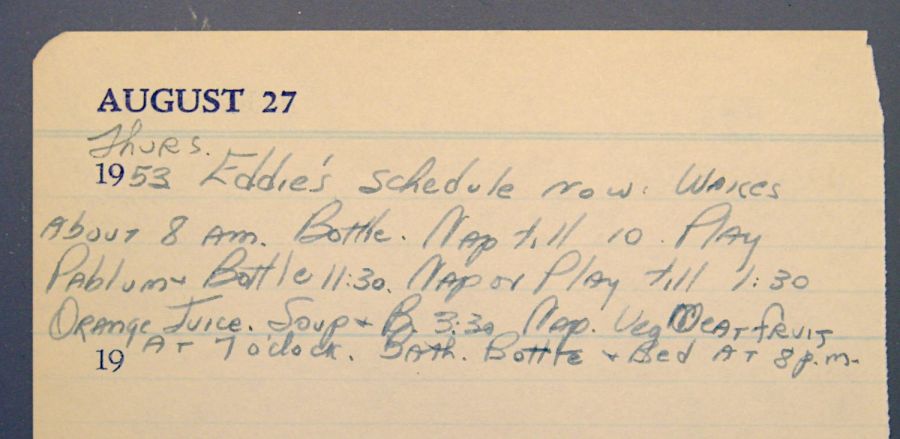 AUGUST 27
Thurs.
1953 Eddie's Schedule now: Wakes
About 8 am. Bottle. Nap till 10. Play
Pablum + Bottle 11:30. Nap or Play till 1:30
Orange Juice. Soup + B. 3:30 Nap. Veg Meat Fruit
At 7 o'clock. Bath. Bottle + Bed At 8 p.m.
19